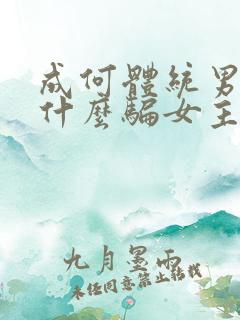 成何體統男
什麼騙女主
九月墨雨
未经同意禁止转载